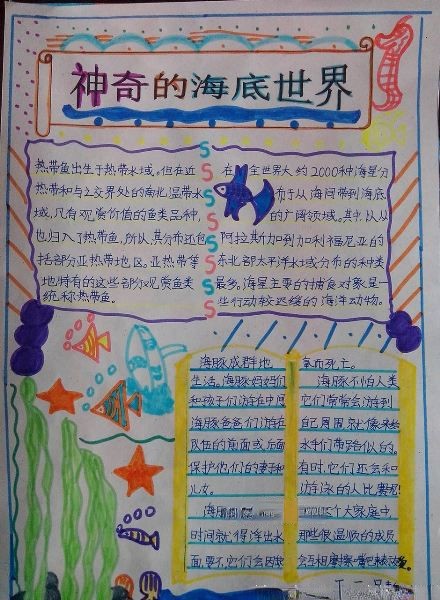 神奇的海底世界
热带鱼出生于热带水域。但在近
热带和与之交界处的南北温带水
域,凡有观赏价值的鱼类品种,
也归入了热带鱼,所以其分布还包
括部分亚热带地区。亚热带等
地特有的这些部分观赏鱼类
统称热带鱼。
在全世界大约2000种海星分
布于从海间带到海底
的广阔领域。其中以从
阿拉斯加到加利福尼亚的
东北部太平洋水域分布的种类
最多。海星主要的捕食对象是一
些行动较迟缓的海洋动物。
海豚成群地
生活。海豚妈妈们
和孩子们游在中间
海豚爸爸们游在
队伍的前面或后面
保护他们的妻子和
儿女。
海豚
时间就得浮出水
面,要不,它们会因缺
氧而死亡。
海豚不怕人类
它们常常会游到
自己周围就像来给
水手们带路似的。
有时,它们还会和
游泳的人比赛呢!
个大家庭中
那些很温顺的成员
会互相摩擦嘴巴